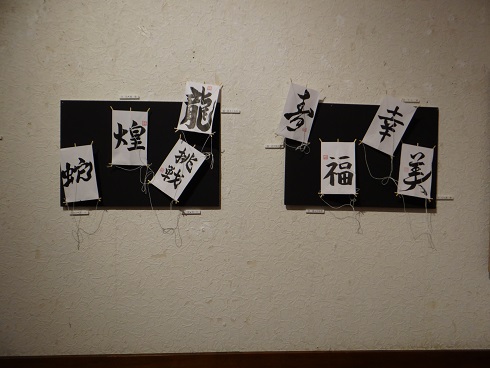 蛇
煌
龍
挑戦
寿
福
幸
美